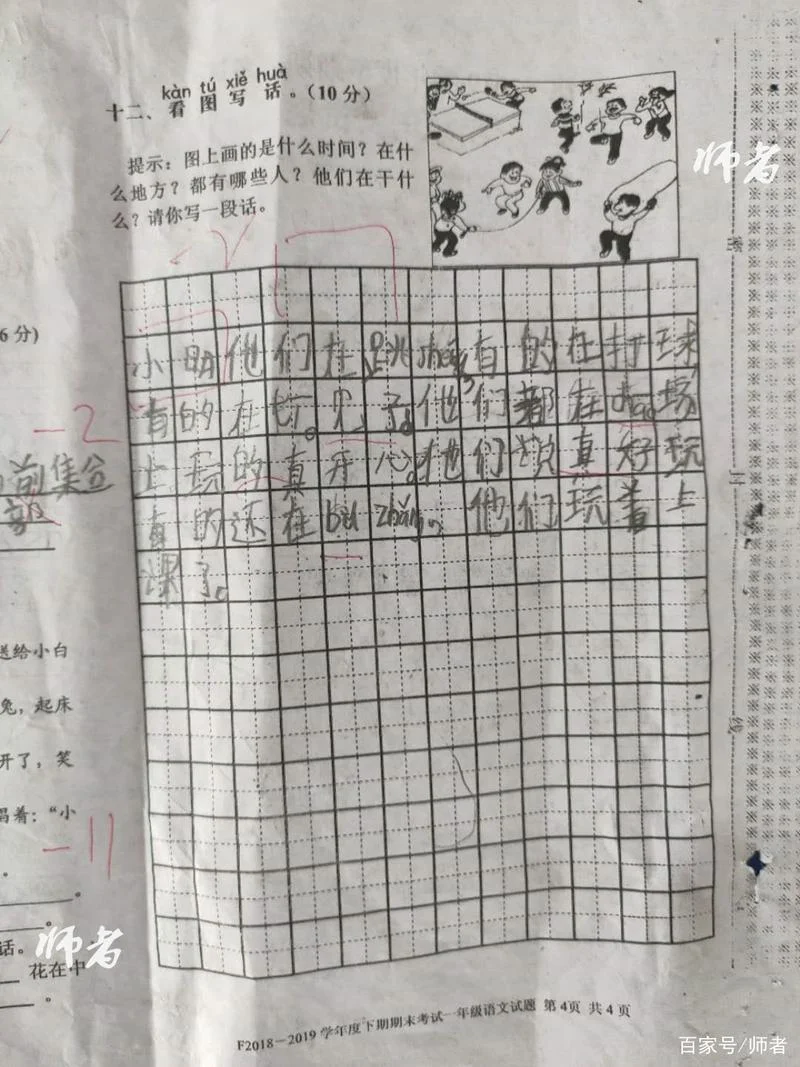 kàn tú xiě huà
十二、看图写话。(10分)
提示：图上画的是什么时间？在什
么地方？都有哪些人？他们在干什
么？请你写一段话。
师者
6分)
小明他们在跳shéng有的在打球
有的在
了。他们都在
场
上玩的真开心。他们说真好玩
有的还在bù zhǎng。他们玩着上
课了。
-2
前集合
送给小白
兔，起床
开了，笑
唱着：“小
-11
话。
花在中
师者
密
封
线
F2018－2019学年度下期期末考试一年级语文试题 第4页 共4页
百家号/师者